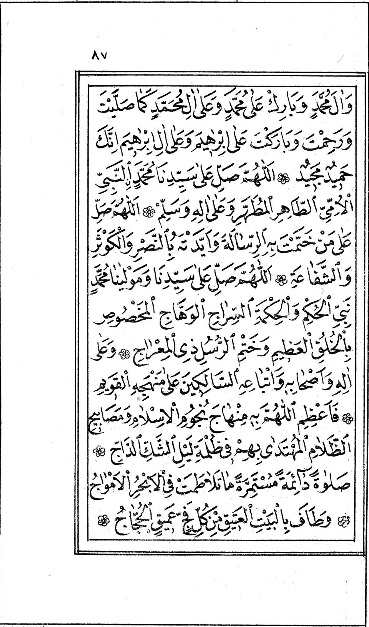 ٨٧
وَاٰلِ مُحَمَّدٍ وَبَارِكْ عَلٰى مُحَمَّدٍ وَعَلٰى اٰلِ مُحَمَّدٍ كَمَا صَلَّيْتَ
وَرَحِمْتَ وَبَارَكْتَ عَلٰى اِبْرٰهِيمَ وَعَلٰى اٰلِ اِبْرٰهِيمَ اِنَّكَ
حَمِيدٌ مَجِيدٌ ۞ اَللّٰهُمَّ صَلِّ عَلٰى سَيِّدِنَا مُحَمَّدٍ اۨلنَّبِيِّ
الْاُمِّيِّ الطَّاهِرِ الْمُطَهَّرِ وَعَلٰى اٰلِهِ وَسَلِّمْ ۞ اَللّٰهُمَّ صَلِّ
عَلٰى مَنْ خَتَمْتَ بِهِ الرِّسَالَةَ وَاَيَّدْتَهُ بِالنَّصْرِ وَالْكَوْثَرِ
وَالشَّفَاعَةِ ۞ اَللّٰهُمَّ صَلِّ عَلٰى سَيِّدِنَا وَمَوْلٰينَا مُحَمَّدٍ
نَبِيِّ الْحُكْمِ وَالْحِكْمَةِ السِّرَاجِ الْوَهَّاجِ الْمَخْصُوصِ
بِالْخُلُقِ الْعَظِيمِ وَخَتْمِ الرُّسُلِ ذِي الْمِعْرَاجِ ۞ وَعَلٰى
اٰلِهِ وَاَصْحَابِهِ وَاَتْبَاعِهِ السَّالِكِينَ عَلٰى مَنْهَجِهِ الْقَوِيمِ
۞ فَاَعْظِمِ اللّٰهُمَّ بِهِ مِنْهَاجَ نُجُومِ الْاِسْلَامِ وَمَصَابِيحِ
الظَّلَامِ الْمُهْتَدٰى بِهِمْ فِي ظُلْمَةِ لَيْلِ الشَّكِّ الدَّاجِ ۞
صَلٰوةً دَائِمَةً مُسْتَمِرَّةً مَا تَلَاطَمَتْ فِي الْاَبْحُرِ الْاَمْوَاجُ
۞ وَطَافَ بِالْبَيْتِ الْعَتِيقِ مِنْ كُلِّ فَجٍّ عَمِيقٍ الْحُجَّاجُ ۞